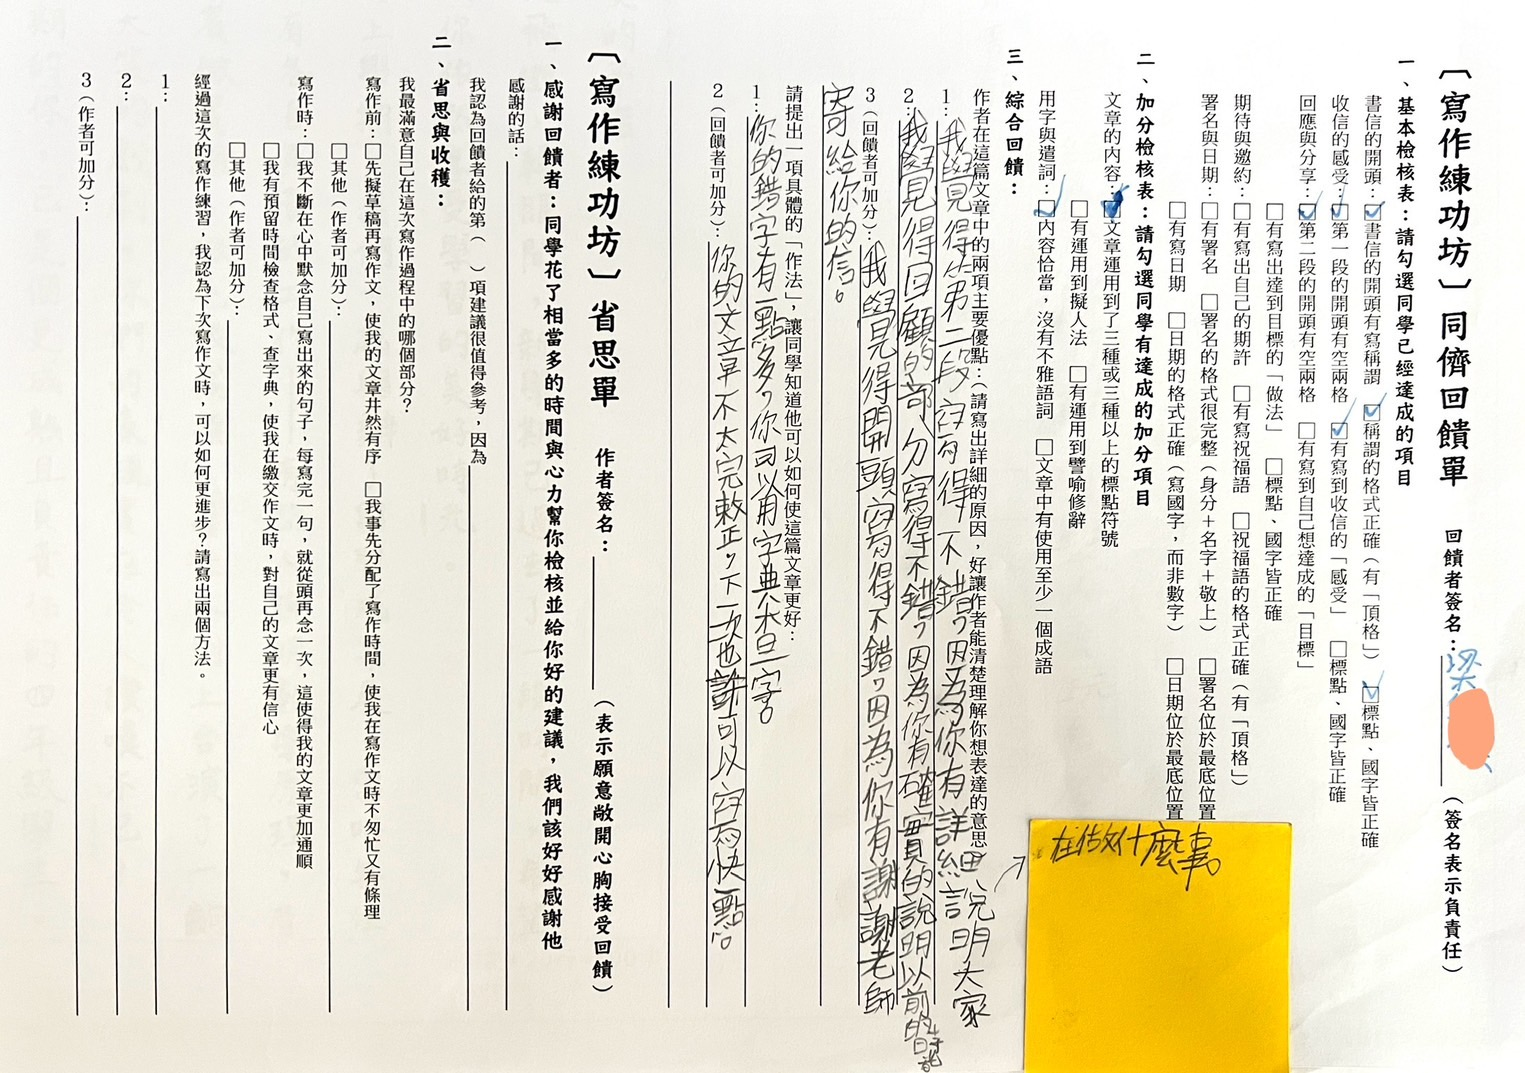 〔寫作練功坊〕同儕回饋單　回饋者簽名：梁（簽名表示負責任）
一、基本檢核表：請勾選同學已經達成的項目
書信的開頭：☑書信的開頭有寫稱謂　☑稱謂的格式正確（有「頂格」）　☑標點、國字皆正確
收信的感受：☑第一段的開頭有空兩格　☑有寫到收信的「感受」　□標點、國字皆正確
回應與分享：☑第二段的開頭有空兩格　□有寫到自己想達成的「目標」
□有寫出達到目標的「做法」　□標點、國字皆正確
期待與邀約：□有寫出自己的期許　□有寫祝福語　□祝福語的格式正確（有「頂格」）
署名與日期：□有署名　□署名的格式很完整（身分＋名字＋敬上）　□署名位於最底位置
□有寫日期　□日期的格式正確（寫國字，而非數字）　□日期位於最底位置
二、加分檢核表：請勾選同學有達成的加分項目
文章的內容：☑文章運用到了三種或三種以上的標點符號
□有運用到擬人法　□有運用到譬喻修辭
用字與遣詞：☑內容恰當，沒有不雅語詞　□文章中有使用至少一個成語
三、綜合回饋：
作者在這篇文章中的兩項主要優點：（請寫出詳細的原因，好讓作者能清楚理解你想表達的意思）
1：我覺得第二段寫得不錯，因為你有詳細說明大家
在做什麼事。
2：我覺得回顧的部分寫得不錯，因為你有確實的說明以前的時記
3（回饋者可加分）：我覺得開頭寫得不錯，因為你有謝謝老師
寄給你的信。
請提出一項具體的「作法」，讓同學知道他可以如何使這篇文章更好：
1：你的錯字有一點多，你可以用字典查一字。
2（回饋者可加分）：你的文章不太完敕正，下一次也許可以寫快一點。
〔寫作練功坊〕省思單　作者簽名：（表示願意敞開心胸接受回饋）
一、感謝回饋者：同學花了相當多的時間與心力幫你檢核並給你好的建議，我們該好好感謝他
感謝的話：
我認為回饋者給的第（　）項建議很值得參考，因為
二、省思與收穫：
我最滿意自己在這次寫作過程中的哪個部分？
寫作前：□先擬草稿再寫作文，使我的文章井然有序　□我事先分配了寫作時間，使我在寫作文時不匆忙又有條理
□其他（作者可加分）：
寫作時：□我不斷在心中默念自己寫出來的句子，每寫完一句，就從頭再念一次，這使得我的文章更加通順
□我有預留時間檢查格式、查字典，使我在繳交作文時，對自己的文章更有信心
□其他（作者可加分）：
經過這次的寫作練習，我認為下次寫作文時，可以如何更進步？請寫出兩個方法。
1：
2：
3（作者可加分）：